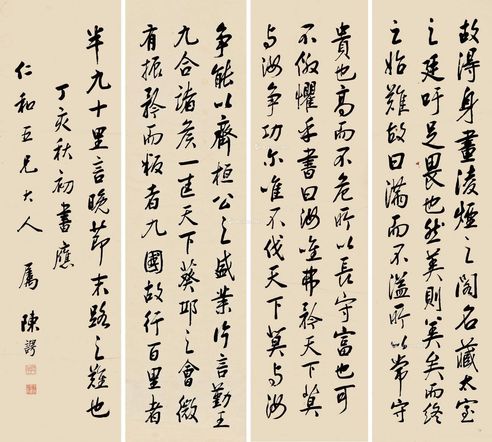 故得身畫淩煙之閣名藏太室
之廷吁足畏也然美則美矣而终
之始難故曰滿而不溢所以常守
貴也高而不危所以長守富也可
不儆懼乎書曰汝唯弗矜天下莫
与汝争功尔唯不伐天下莫与汝
争能以齊桓公之盛業片言勤王
九合諸侯一匡天下葵邱之會微
有振矜而叛者九國故行百里者
半九十里言晚莭末路之難也
丁亥秋初書應
仁和五兄大人 属 陳諤